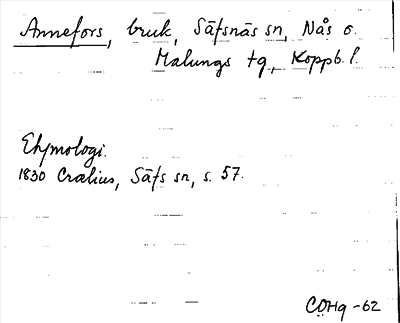 Annefors, bruk, Säfsnäs sn, Nås o.
Malungs tg, Koppb. l.
Etymologi.
1830 Crælius, Säfs sn, s. 57.
COHg -62